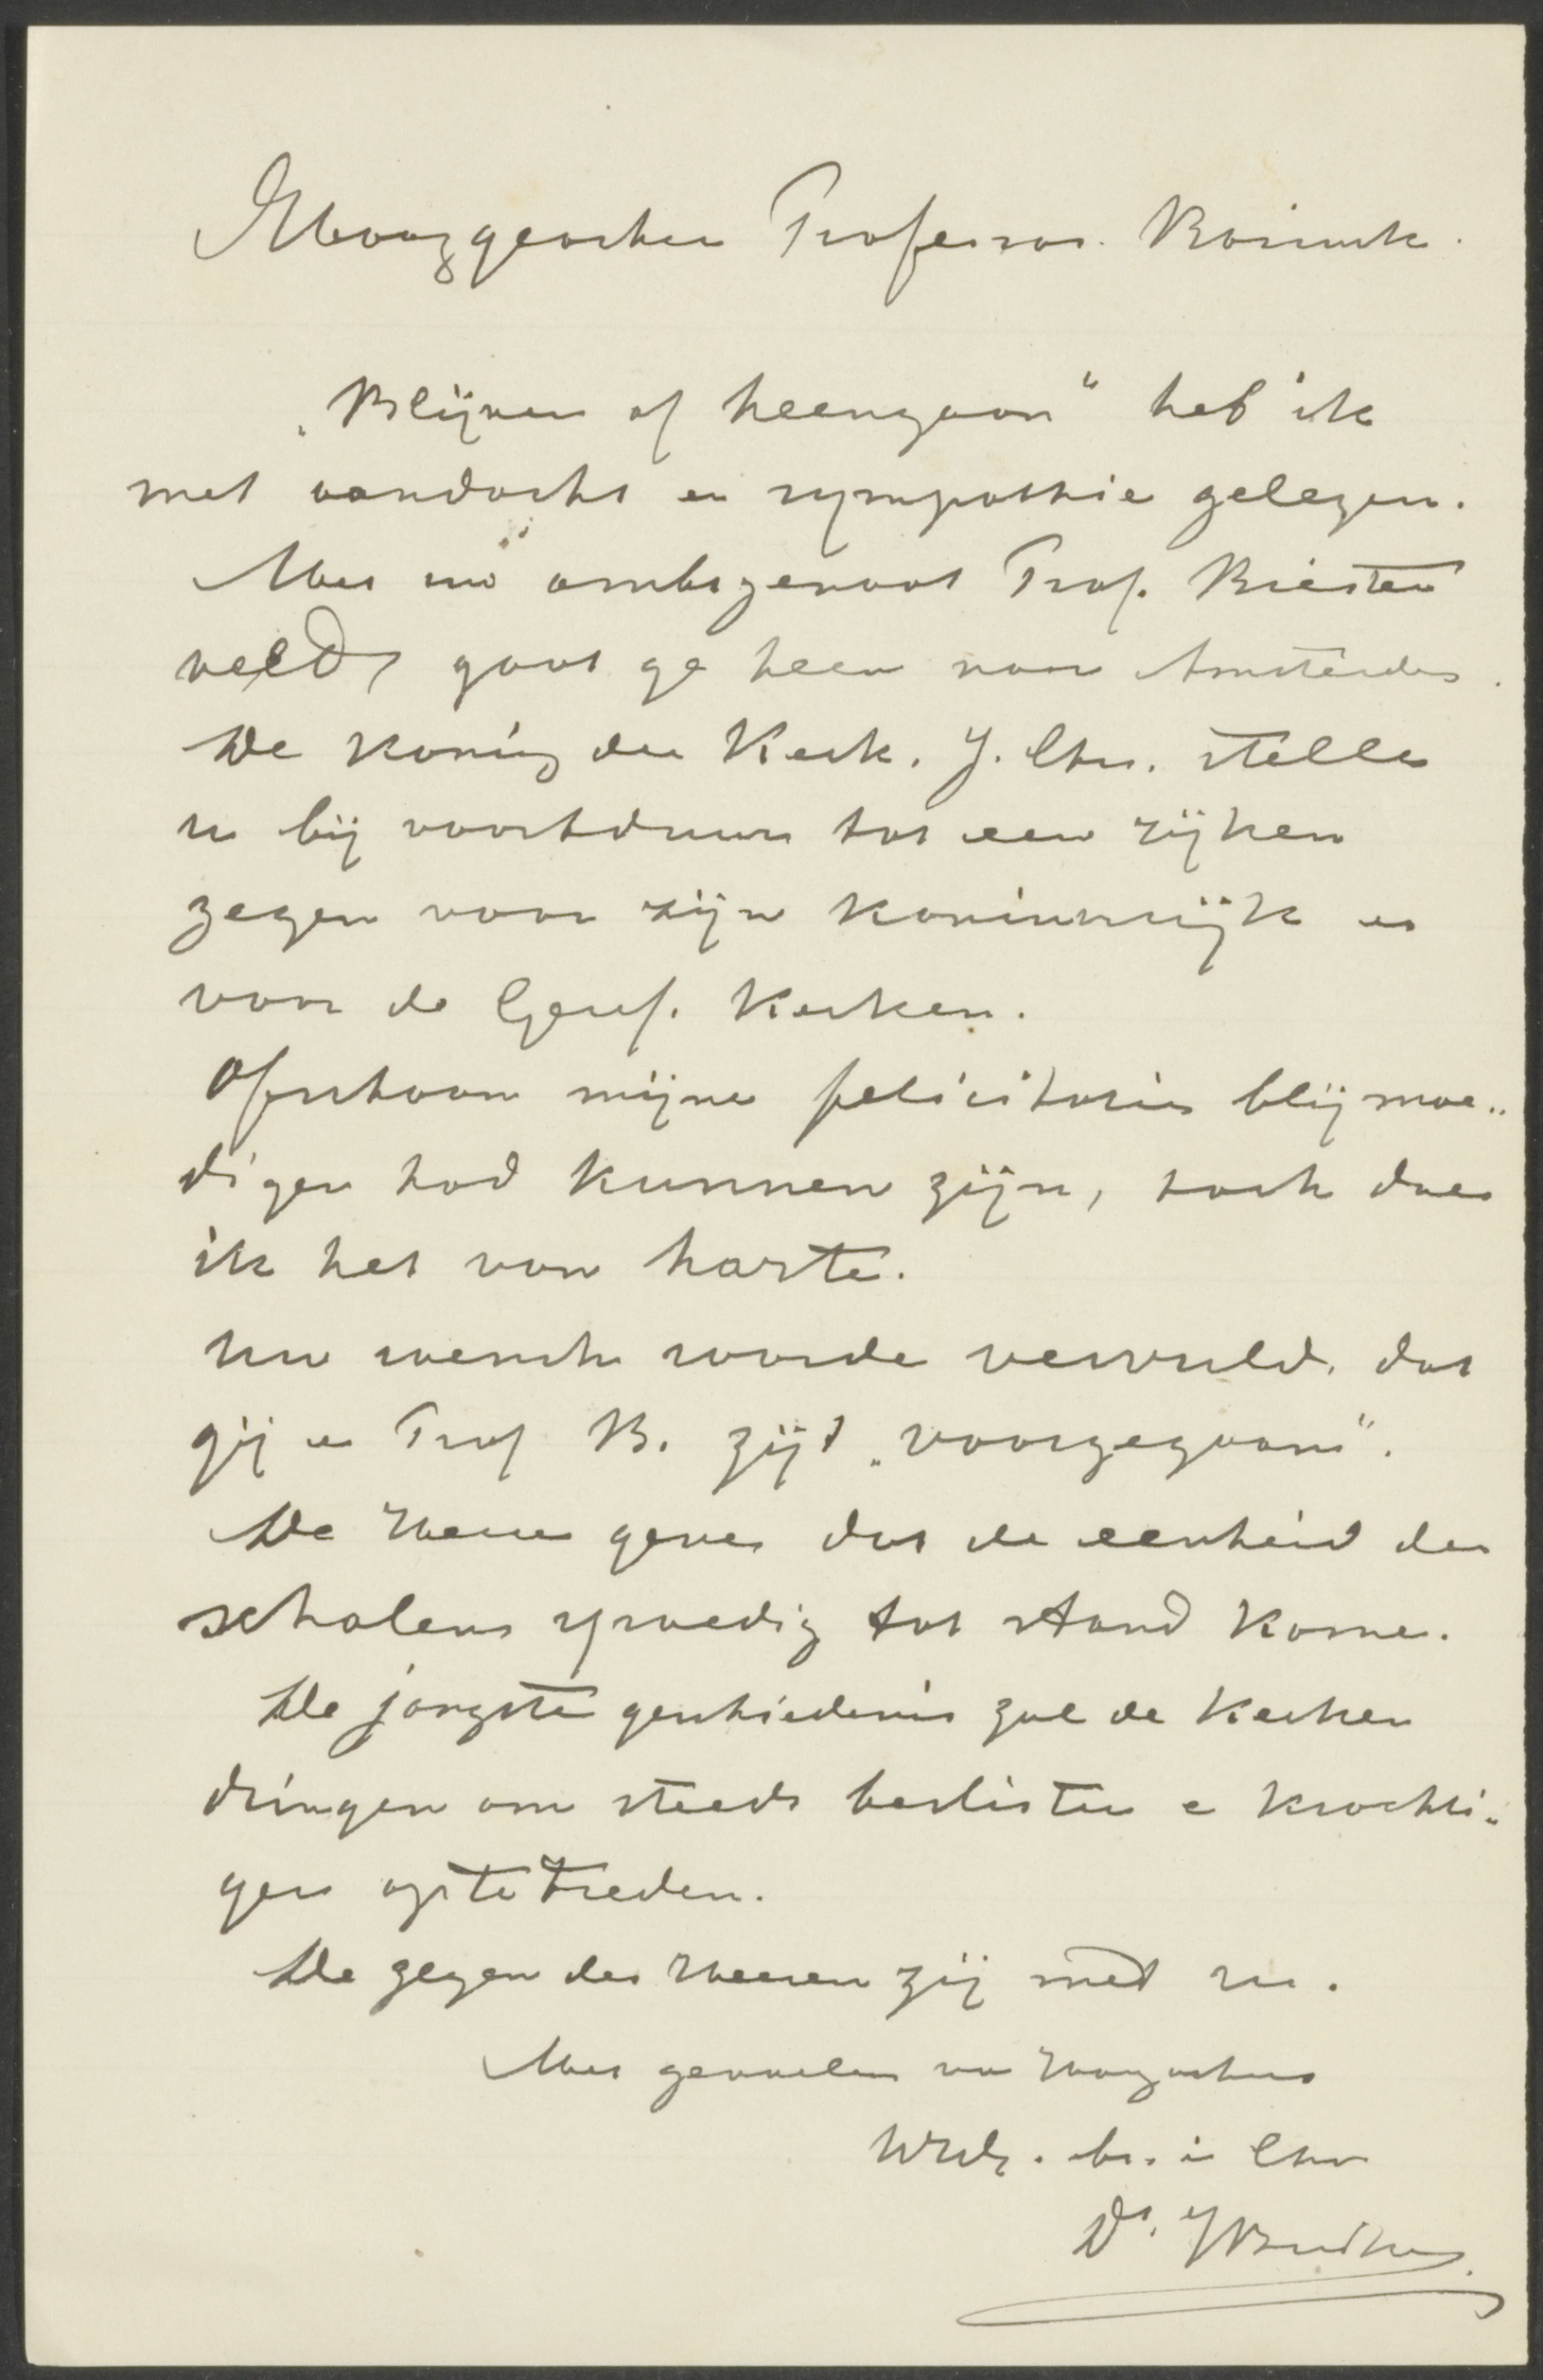 Hooggeachte Professor Bavinck.
„Blijven of heengaan" heb ik
met aandacht en sympathie gelezen.
Met uw ambtgenoot Prof. Biester
veld, gaat ge heen naar Amsterdam.
De Koning der Kerk. J. Chr. stelle
u bij voortduur tot een rijken
zegen voor zijn koninkrijk en
voor de Geref. Kerken.
Ofschoon mijne felicitatie blijmoe„
diger had kunnen zijn, toch doe
ik het van harte.
Uw wensch worde vervuld, dat
gij en Prof B. zijt „voorgegaan".
De Heere geve dat de eenheid der
scholen spoedig tot stand kome.
De jongste geschiedenis zal de Kerken
dringen om steeds beslister en krachti„
ger op te treden.
De zegen des Heeren zij met u.
Met gevoelen van Hoogachting
br. in Chr
Ds.